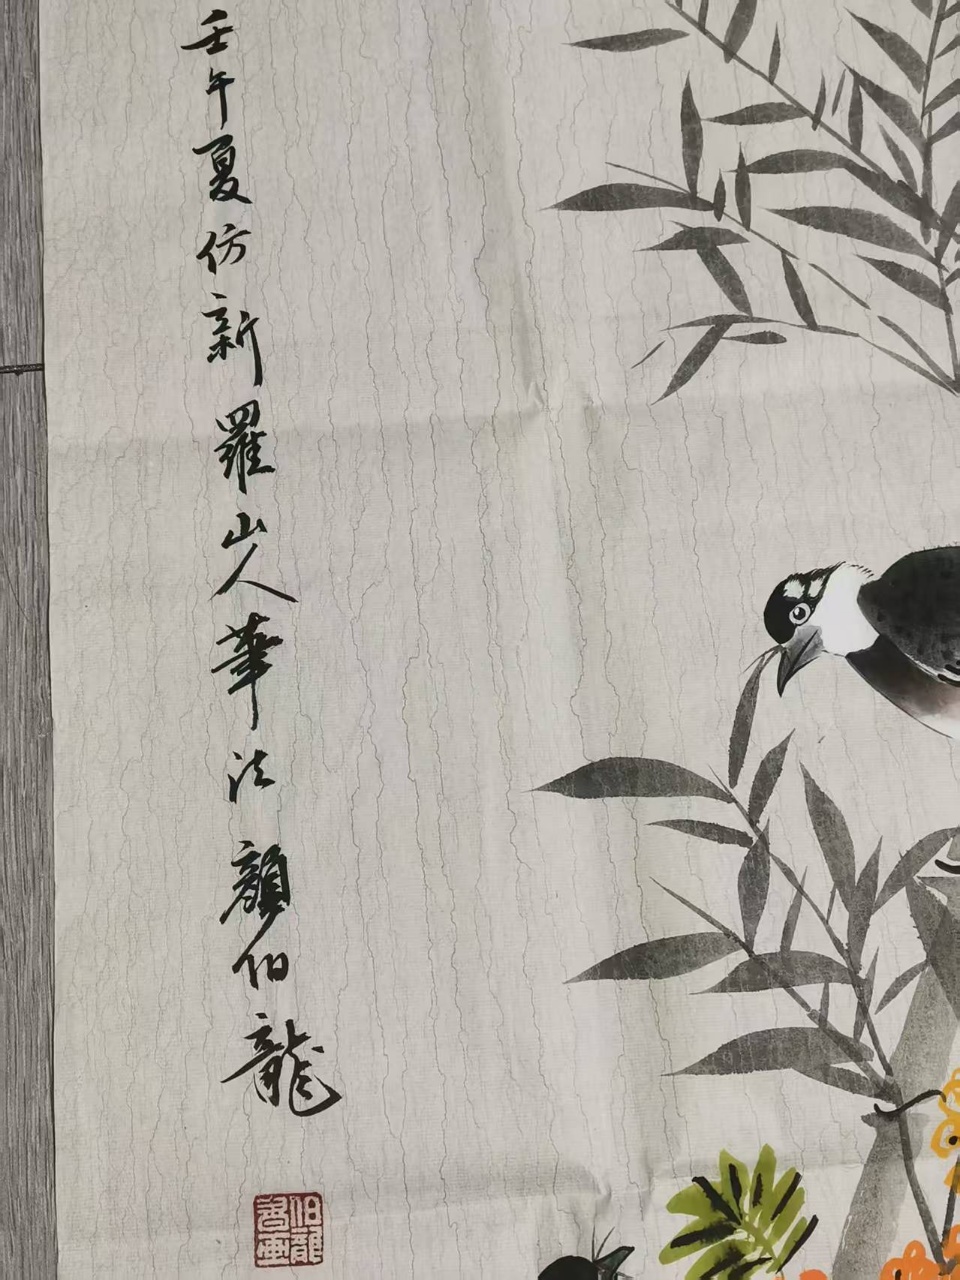 壬午夏仿新羅山人華法顏伯龍
伯龍